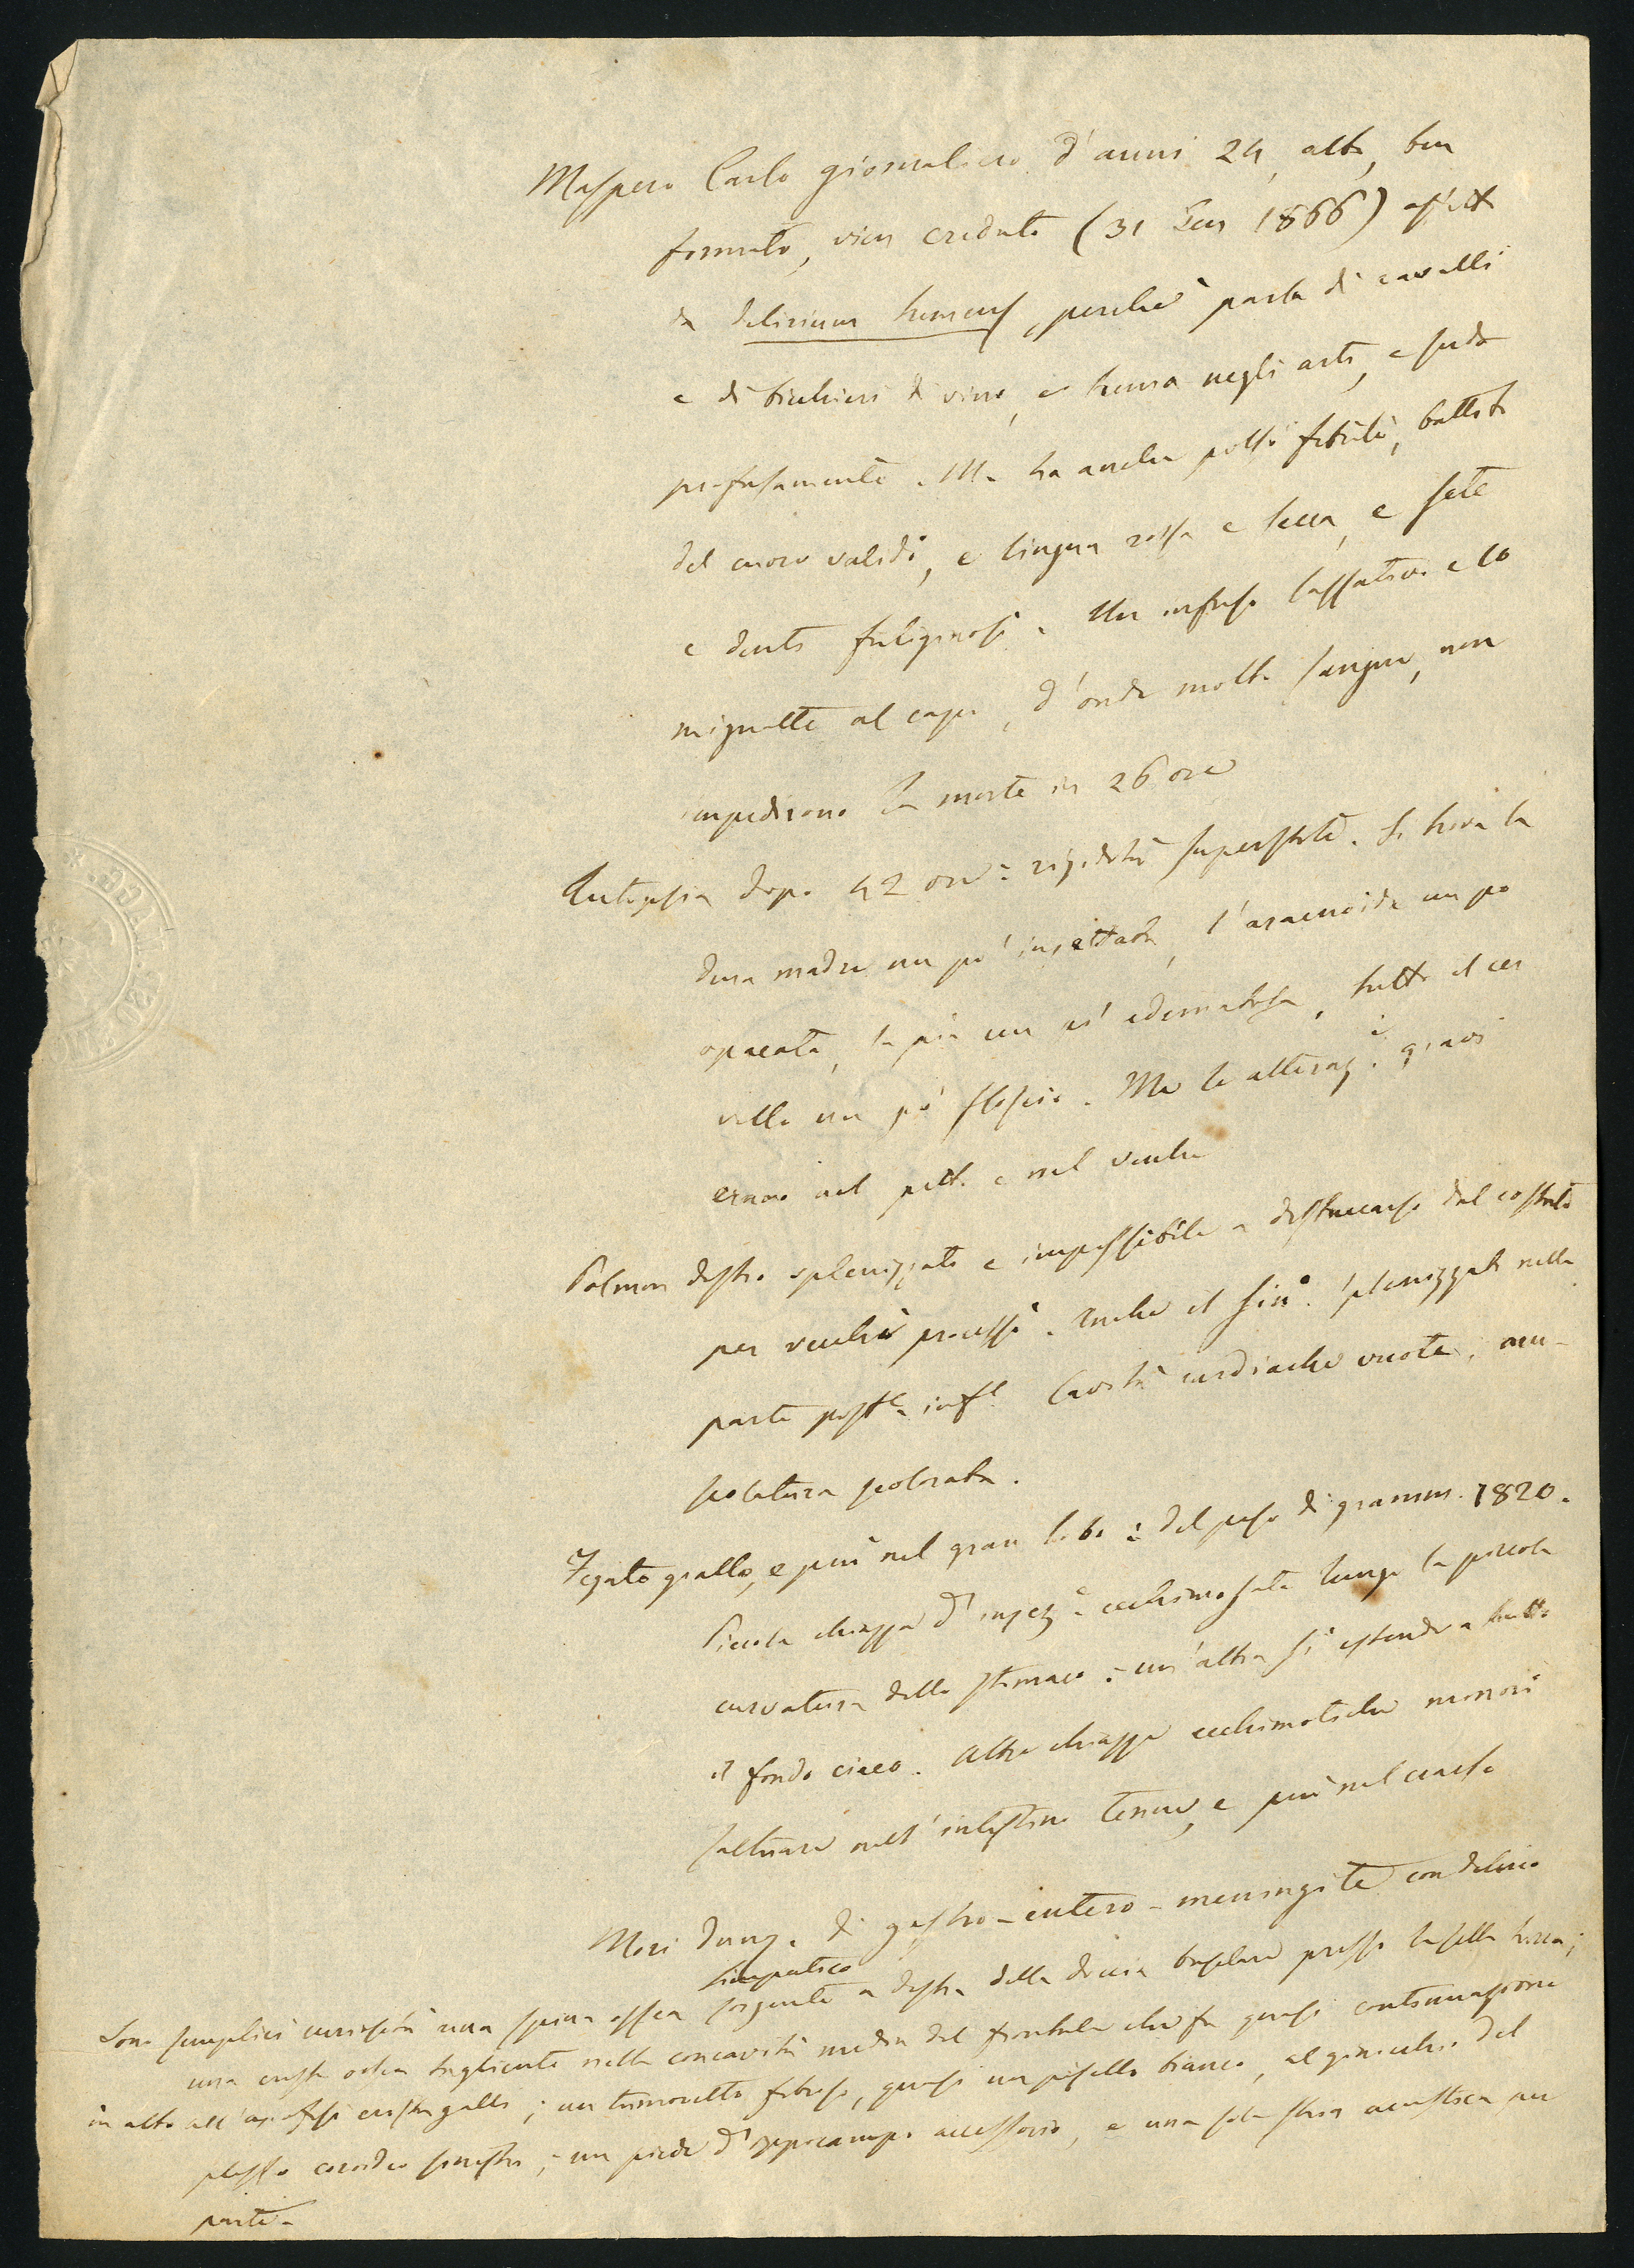 Maspero Carlo giornaliero d'anni 24, alto, ben
formato, vien creduto (31 Gen 1866) affetto
da delirium tremens, perchè parla di cavalli
e di bichieri di vino, e trema negli arti, e suda
profusamente. Ma ha anche polsi febrili, battito
del cuore valido, e lingua rossa e secca, e sete
e denti fuliginosi. Un infuso lassativo e 10
mignatte al capo, d'onde molto sangue, non
impedirono la morte in 26 ore
Autopsia dopo 42 ore: rigidità superstite. Si trova la
dura madre un po' injettata, l'aracnoide un po
opacata, la pia un po' edematosa, tutto il cer
vello un po' floscio. Ma le alteraz.i gravi
erano nel petto e nel ventre
Polmon destro splenizzato e impossibile a distaccarsi dal costato
per vecchi processi. Anche il sin.o splenizzato nella
parte post.e inf.e Cavità cardiache vuote, mu-
scolatura scolorata.
Fegato giallo, e più nel gran lobo: del peso di gramm. 1820.
Piccola chiazza d'injez.e ecchimosata lungo la piccola
curvatura dello stomaco: un'altra si estende a tutto
il fondo cieco. Altre chiazze ecchimotiche minori
saltuarie nell'intestino tenue, e più nel crasso
Morì dunq.e di gastro-entero-meningite con delirio
simpatico
Sono semplici curiosità una spina ossea sorgente a destra della doccia basilare presso la sella turca;
una cresta ossea tagliente nella concavità media del frontale che fa quasi continuazione
in alto all'apofisi cristagalli; un tumoretto fibroso, quasi un pisello bianco, al ginocchio del
plesso coroideo sinistro; un piede d'ippocampo accessorio, e una sola stria acustica per
parte.